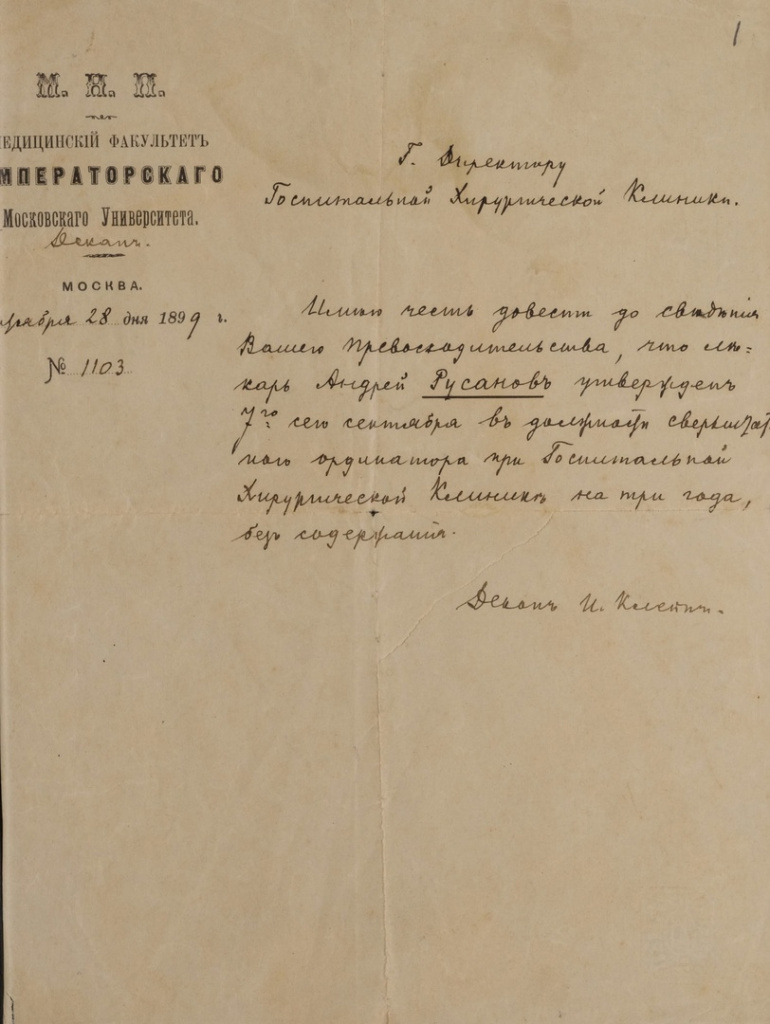 1
М. Н. П.
ЕДИЦИНСКІЙ ФАКУЛЬТЕТЪ
МПЕРАТОРСКАГО
Московскаго Университета.
Деканъ.
МОСКВА.
тября 28 дня 1899 г.
№ 1103
Г. Директору
Госпитальной Хирургической Клиники.
Имѣю честь довести до свѣдѣнія
Вашего Превосходительства, что лѣ-
карь Андрей Русановъ утвержденъ
7го сего сентября въ должности сверхштат
наго ординатора при Госпитальной
Хирургической Клиникѣ на три года,
безъ содержанія.
Деканъ И. Клейнъ.